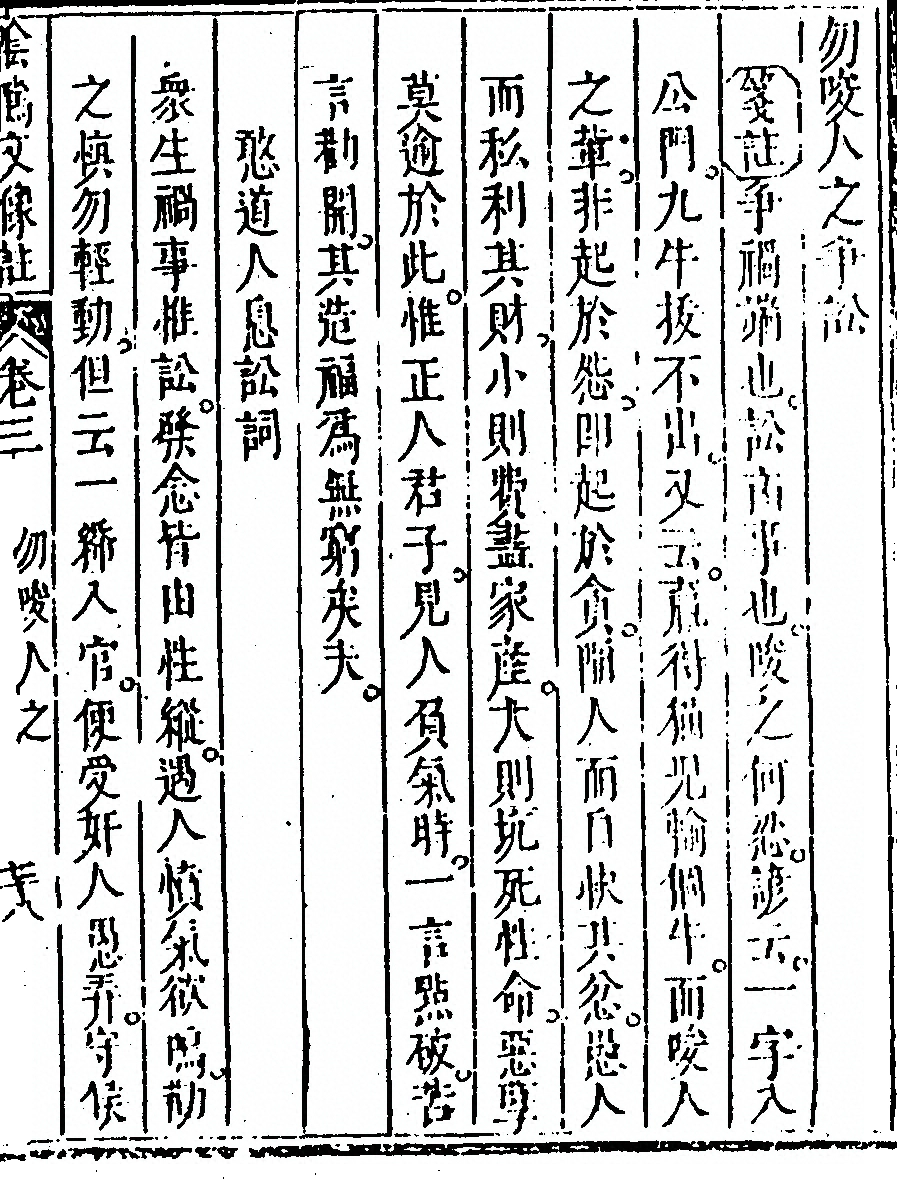 勿唆人之爭訟
箋註爭禍端也訟凶事也唆之何忍諺云一字入
公門九牛拔不出又云贏得猫兒輸個牛而唆人
之輩非起於怨即起於貪陷人而自快其忿愚人
而私利其財小則費盡家産大則坑死性命惡孽
莫逾於此惟正人君子見人負氣時一言點破苦
言勸開其造福爲無窮矣夫
憨道人息訟詞
衆生禍事惟訟槩念皆由性縱遇人憤氣欲鳴勸
之愼勿輕動但云一紙入官便受奸人愚弄守候
陰隲文像註 卷三 勿唆人之